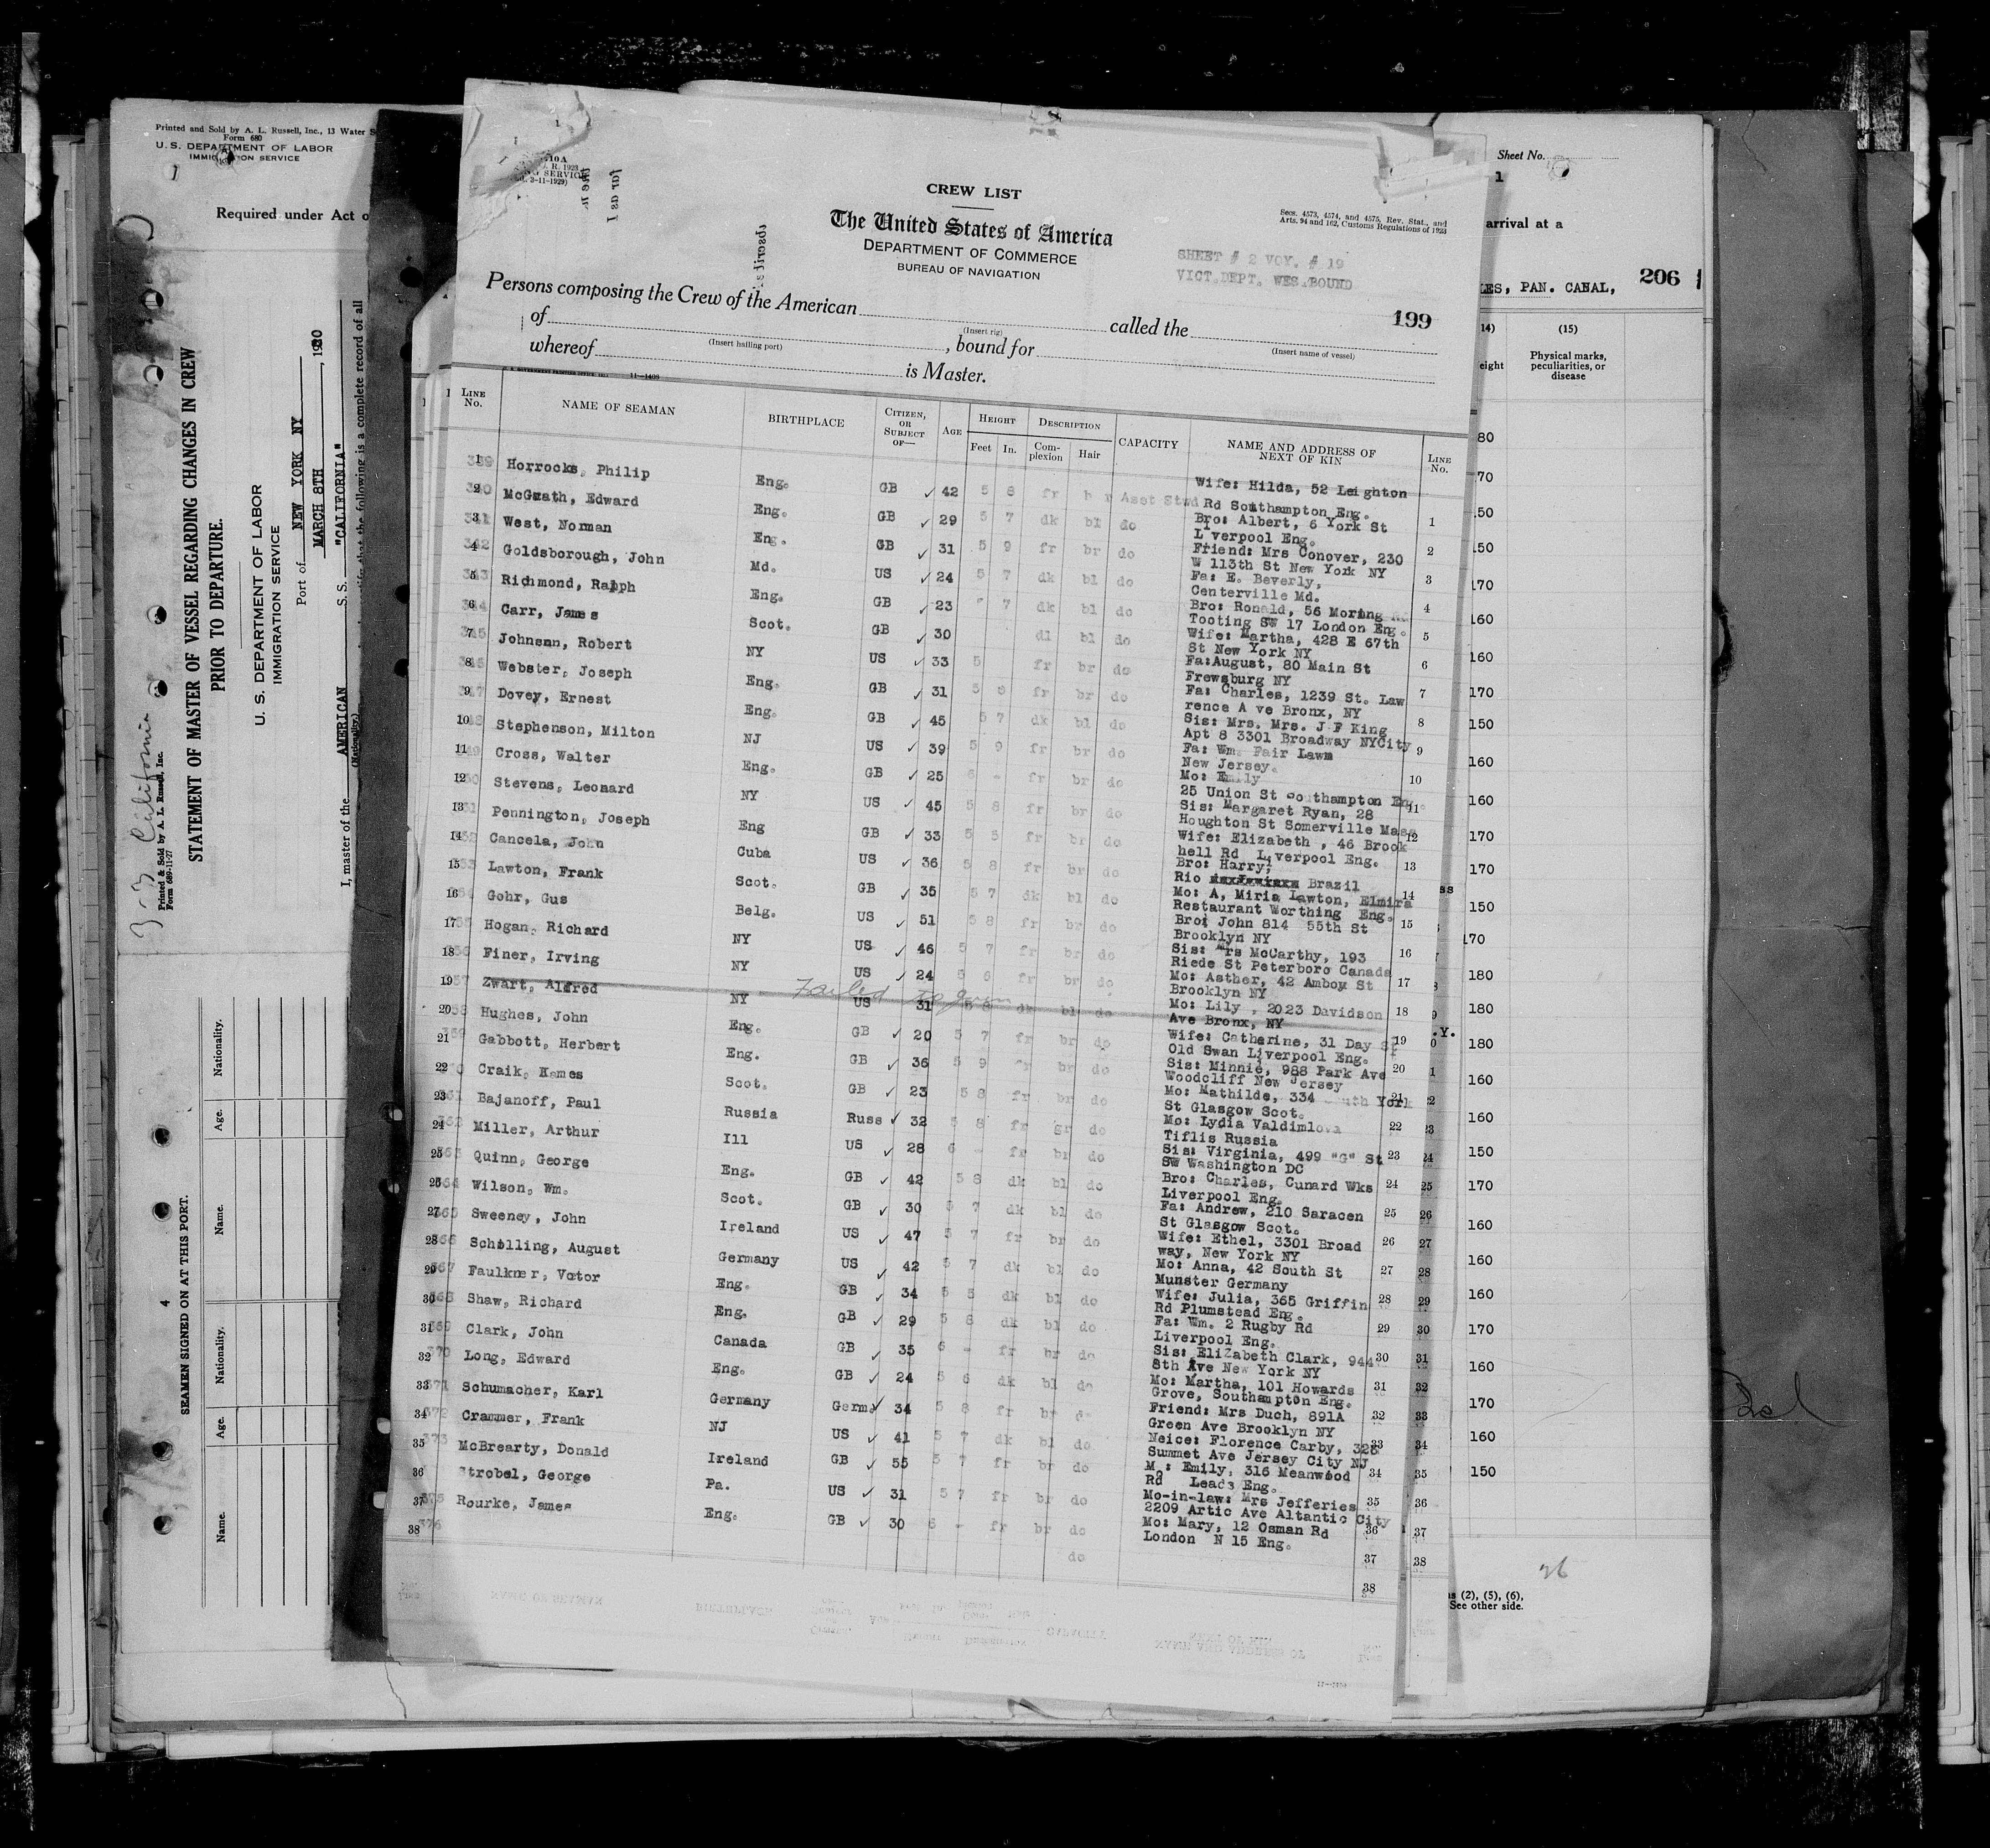 Printed and Sold by A. L. Russell, Inc., 13 Water
Form 680
U. S. DEPARTMENT OF LABOR
IMMIGRATION SERVICE
Required under Act
STATEMENT OF MASTER OF VESSEL REGARDING CHANGES IN CREW
PRIOR TO DEPARTURE.
U. S. DEPARTMENT OF LABOR
IMMIGRATION SERVICE
Port of NEW YORK NY
MARCH 8TH
I, master of the AMERICAN S. S. "CALIFORNIA"
(Nationality.)
that the following is a complete record of all
California
Printed & Sold by A. L. Russell, Inc.
Form 689-11-27
4
SEAMEN SIGNED ON AT THIS PORT.
Name. Age. Nationality. Name. Age. Nationality.
CREW LIST
The United States of America
DEPARTMENT OF COMMERCE
BUREAU OF NAVIGATION
Secs. 4573, 4574, and 4575, Rev. Stat., and
Arts. 94 and 162, Customs Regulations of 1923
SHEET # 2 VOY. # 19
VICT.DEPT. WES.BOUND
199
Persons composing the Crew of the American called the
(Insert rig) (Insert name of vessel)
of , bound for
(Insert hailing port)
whereof is Master.
LINE No. NAME OF SEAMAN BIRTHPLACE CITIZEN, OR SUBJECT OF— AGE HEIGHT Feet In. DESCRIPTION Complexion Hair CAPACITY NAME AND ADDRESS OF NEXT OF KIN LINE No.
1 Horrocks, Philip Eng. GB 42 5 8 fr br Asst Stwd Wife: Hilda, 52 Leighton
Rd Southampton Eng.
2 McGrath, Edward Eng. GB 29 5 7 dk bl do Bro: Albert, 6 York St
L'verpool Eng.
3 West, Norman Eng. GB 31 5 9 fr br do Friend: Mrs Conover, 230
W 113th St New York NY
4 Goldsborough, John Md. US 24 5 7 dk bl do Fa: E. Beverly,
Centerville Md.
5 Richmond, Ralph Eng. GB 23 7 dk bl do Bro: Ronald, 56 Moring
Tooting SW 17 London Eng.
6 Carr, James Scot. GB 30 dl bl do Wife: Martha, 428 E 67th
St New York NY
7 Johnson, Robert NY US 33 5 fr br do Fa:August, 80 Main St
Frewsburg NY
8 Webster, Joseph Eng. GB 31 5 8 fr br do Fa: Charles, 1239 St. Law
rence A ve Bronx, NY
9 Dovey, Ernest Eng. GB 45 5 7 dk bl do Sis: Mrs. Mrs. J F King
Apt 8 3301 Broadway NYCity
10 Stephenson, Milton NJ US 39 5 9 fr br do Fa: Wm. Fair Lawn
New Jersey.
11 Cross, Walter Eng. GB 25 6 - fr br do Mo: Emily
25 Union St Southampton Eng.
12 Stevens, Leonard NY US 45 5 8 fr br do Sis: Margaret Ryan, 28
Houghton St Somerville Mass
13 Pennington, Joseph Eng GB 33 5 5 fr br do Wife: Elizabeth , 46 Brook
hell Rd Liverpool Eng.
14 Cancela, John Cuba US 36 5 8 fr br do Bro: Harry,
Rio Brazil
15 Lawton, Frank Scot. GB 35 5 7 dk bl do Mo: A, Miria Lawton, Elmira
Restaurant Worthing Eng.
16 Gohr, Gus Belg. US 51 5 8 fr br do Bro: John 814 55th St
Brooklyn NY
17 Hogan, Richard NY US 46 5 7 fr br do Sis: Mrs McCarthy, 193
Riede St Peterboro Canada
18 Finer, Irving NY US 24 5 6 fr br do Mo: Asther, 42 Amboy St
Brooklyn NY
19 Zwart, Alfred NY US 31 5 8 dk bl do Mo: Lily , 2023 Davidson
Failed to join
Ave Bronx, NY
20 Hughes, John Eng. GB 20 5 7 fr br do Wife: Catherine, 31 Day St
Old Swan Liverpool Eng.
21 Gabbott, Herbert Eng. GB 36 5 9 fr br do Sis: Minnie, 988 Park Ave
Woodcliff New Jersey
22 Craik, Hames Scot. GB 23 5 8 fr br do Mo: Mathilde, 334 South York
St Glasgow Scot.
23 Bajanoff, Paul Russia Russ 32 5 8 fr gr do Mo: Lydia Valdimlova
Tiflis Russia
24 Miller, Arthur Ill US 28 6 - fr br do Sis: Virginia, 499 "G" St
SW Washington DC
25 Quinn, George Eng. GB 42 5 8 dk bl do Bro: Charles, Cunard Wks
Liverpool Eng.
26 Wilson, Wm. Scot. GB 30 5 7 dk bl do Fa: Andrew, 210 Saracen
St Glasgow Scot.
27 Sweeney, John Ireland US 47 5 7 fr br do Wife: Ethel, 3301 Broad
way, New York NY
28 Schelling, August Germany US 42 5 7 dk bl do Mo: Anna, 42 South St
Munster Germany
29 Faulkner, Vctor Eng. GB 34 5 5 dk bl do Wife: Julia, 365 Griffin
Rd Plumstead Eng.
30 Shaw, Richard Eng. GB 29 5 8 dk bl do Fa: Wm. 2 Rugby Rd
Liverpool Eng.
31 Clark, John Canada GB 35 6 - fr br do Sis: Elizabeth Clark, 944
8th Ave New York NY
32 Long, Edward Eng. GB 24 5 6 dk bl do Mo: Martha, 101 Howards
Grove, Southampton Eng.
33 Schumacher, Karl Germany Germ. 34 5 8 fr br do Friend: Mrs Duch, 891A
Green Ave Brooklyn NY
34 Crammer, Frank NJ US 41 5 7 dk bl do Neice: Florence Carby, 328
Summet Ave Jersey City NJ
35 McBrearty, Donald Ireland GB 55 5 7 fr br do Mo: Emily, 316 Meanwood
Rd Leads Eng.
36 Strobel, George Pa. US 31 5 7 fr br do Mo-in-law: Mrs Jefferies
2209 Artic Ave Altantic City
37 Rourke, James Eng. GB 30 6 - fr br do Mo: Mary, 12 Osman Rd
London N 15 Eng.
38 do
Sheet No.
1
arrival at a
PAN. CANAL, 206
(15)
Physical marks, peculiarities, or disease
80
170
150
150
170
160
160
170
150
160
160
170
170
150
170
180
180
180
160
160
150
170
160
160
160
170
160
170
160
150
26
(2), (5), (6),
See other side.